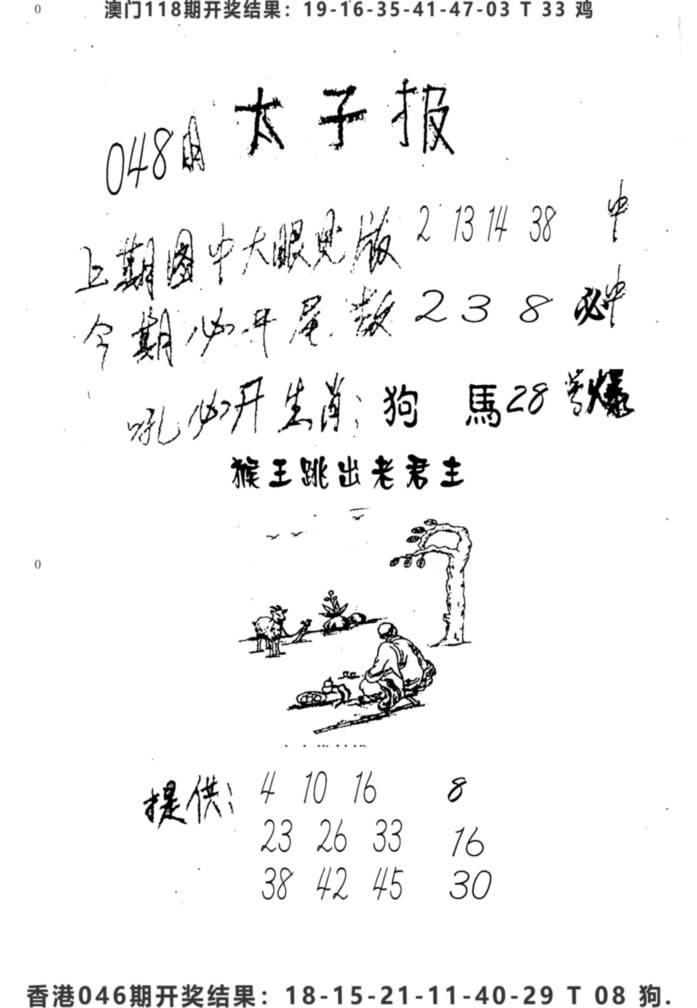 0
澳门118期开奖结果：19-16-35-41-47-03 T 33 鸡
太子报
048期
上期图中大眼见版 2 13 14 38 中
今期必开尾数 2 3 8 必中
吼必开生肖：狗 馬 28 号爆
猴王跳出老君主
0
提供： 4 10 16 8
23 26 33 16
38 42 45 30
香港046期开奖结果：18-15-21-11-40-29 T 08 狗.